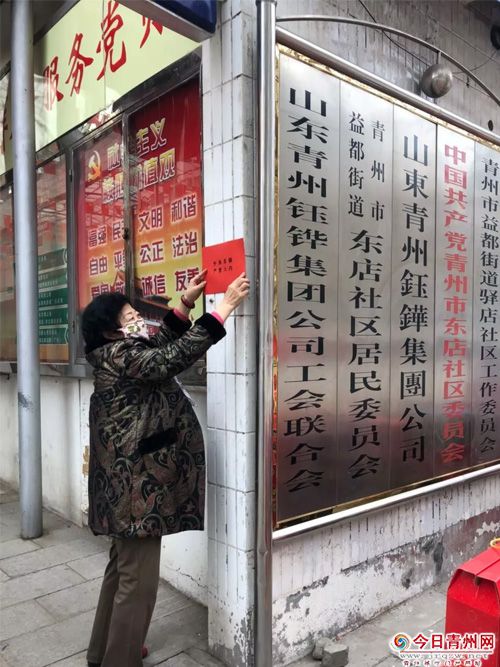 服务党
主义
价值观
富强 民主 文明 和谐
自由 平等 公正 法治
诚信 友善
山东青州钰铧集团公司工会联合会
青州市
益都街道
东店社区居民委员会
山東青州鈺鏵集團公司
中国共产党青州市东店社区委员会
青州市益都街道驿店社区工作委员会
今日青州网
www.jrqzw.net